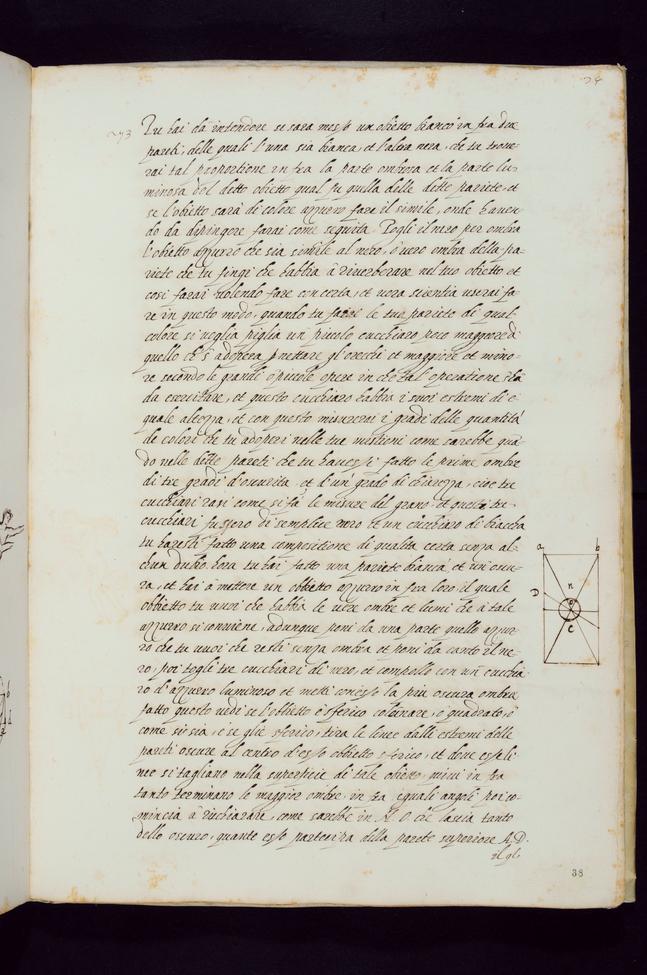 24
273 Tu hai da intendere se sara messo un obietto bianco in fra due
pareti, delle quali l'una sia bianca, et l'altra nera, che tu troue-
rai tal proportione in fra la parte ombrosa et la parte lu-
minosa del detto obietto qual fu quilla delle dette pariete, et
se l'obietto sarà di colore azzurro fara il simile, onde hauen-
do da dipingere farai come seguita. Togli il nero per ombra
l'obietto azzurro che sia simile al nero, o uero ombra della pa-
riete che tu fingi che habbia à riuerberare nel tuo obietto et
cosi farai uolendo fare con certa, et uera scientia userai fa-
re in questo modo, quando tu farai le tue pariete di qual
colore si uoglia piglia un piccolo cucchiaro poco maggiore di
quello ch's'adopera p nettare gl'orecchi et maggiore et mino-
re secondo le grandi ò piccole opere in che tal' operatione s'ha
da esercitare, et questo cucchiaro habbia i suoi estremi di e-
quale altezza, et con questo misurerai i gradi delle quantità
de colori che tu adoperi nelle tue mistioni come sarebbe qua-
do nelle dette pareti che tu hauessi fatto le prime ombre
di tre gradi d'oscurita, et d'un' grado di chiarezza, cioe tre
cucchiari rasi come si fà le misure del grano et questi tre
cucchiari fussero di semplice nero et un cucchiaro di biaccha
tu haresti fatto una compositione di qualita certa senza al-
chun dubio. hora tu hai fatto una pariete bianca et un' oscu-
ra, et hai à mettere un obbietto azzurro in fra loro il quale
obbietto tu uuoi che habbia le uere ombre et lumi che à tale
azzurro si conuiene, adunque poni da una parte quello azzur-
ro che tu uuoi che resti senza ombra et poni da canto il ne-
ro, poi togli tre cucchiari di nero, et compollo con un cucchia-
ro d'azzurro luminoso et metti con esso la piu oscura ombra
fatto questo uedi se l'obbietto è sferico colonnare, o quadrato, ò
come si sia, e se gli è sferico, tira le linee dalli estremi delle
pareti oscure al centro d'esso obbietto sferico, et doue esse li-
nee si tagliano nella superficie di tale obieto, quiui in fra
tanto terminano le maggior ombre in fra equali angoli poi co-
mincia à rischiarare, come sarebbe in N. O. che lascia tanto
dello oscuro, quanto esso partecipa della parete superiore A. D.
il ql.
a b
n
D
o
c
38